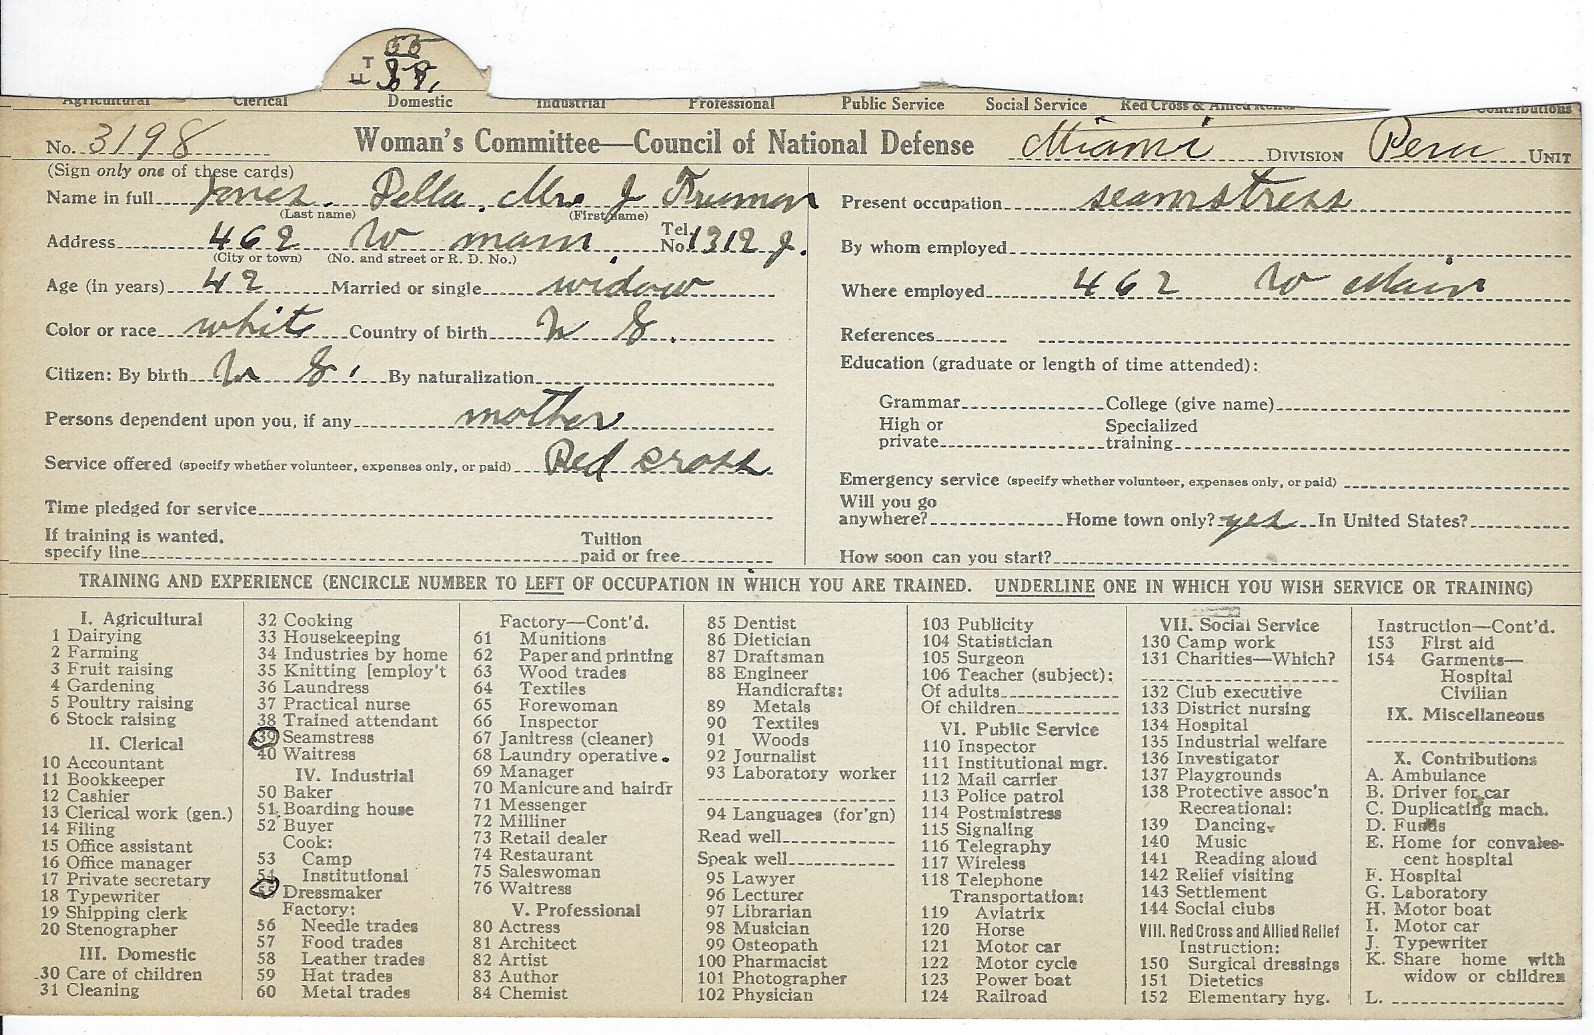 55
F T
Agricultural Clerical Domestic Industrial Professional Public Service Social Service Red Cross & Allied Relief Contributions
No. 3198 Woman's Committee—Council of National Defense Miami DIVISION Peru UNIT
(Sign only one of these cards)
Name in full Jones. Della. Mrs J Freeman
(Last name) (First name)
Address 462 W main Tel. No. 1312 J.
(City or town) (No. and street or R. D. No.)
Age (in years) 42 Married or single widow
Color or race white Country of birth U S.
Citizen: By birth U S. By naturalization
Persons dependent upon you, if any mother
Service offered (specify whether volunteer, expenses only, or paid) Red cross
Time pledged for service
If training is wanted, specify line Tuition paid or free
Present occupation seamstress
By whom employed
Where employed 462 W Main
References
Education (graduate or length of time attended):
Grammar College (give name)
High or private Specialized training
Emergency service (specify whether volunteer, expenses only, or paid)
Will you go anywhere? Home town only? yes In United States?
How soon can you start?
TRAINING AND EXPERIENCE (ENCIRCLE NUMBER TO LEFT OF OCCUPATION IN WHICH YOU ARE TRAINED. UNDERLINE ONE IN WHICH YOU WISH SERVICE OR TRAINING)
I. Agricultural
1 Dairying
2 Farming
3 Fruit raising
4 Gardening
5 Poultry raising
6 Stock raising
II. Clerical
10 Accountant
11 Bookkeeper
12 Cashier
13 Clerical work (gen.)
14 Filing
15 Office assistant
16 Office manager
17 Private secretary
18 Typewriter
19 Shipping clerk
20 Stenographer
III. Domestic
30 Care of children
31 Cleaning
32 Cooking
33 Housekeeping
34 Industries by home
35 Knitting [employ't
36 Laundress
37 Practical nurse
38 Trained attendant
39 Seamstress
40 Waitress
IV. Industrial
50 Baker
51 Boarding house
52 Buyer
Cook:
53 Camp
54 Institutional
55 Dressmaker
Factory:
56 Needle trades
57 Food trades
58 Leather trades
59 Hat trades
60 Metal trades
Factory—Cont'd.
61 Munitions
62 Paper and printing
63 Wood trades
64 Textiles
65 Forewoman
66 Inspector
67 Janitress (cleaner)
68 Laundry operative
69 Manager
70 Manicure and hairdr
71 Messenger
72 Milliner
73 Retail dealer
74 Restaurant
75 Saleswoman
76 Waitress
V. Professional
80 Actress
81 Architect
82 Artist
83 Author
84 Chemist
85 Dentist
86 Dietician
87 Draftsman
88 Engineer
Handicrafts:
89 Metals
90 Textiles
91 Woods
92 Journalist
93 Laboratory worker
94 Languages (for'gn)
Read well
Speak well
95 Lawyer
96 Lecturer
97 Librarian
98 Musician
99 Osteopath
100 Pharmacist
101 Photographer
102 Physician
103 Publicity
104 Statistician
105 Surgeon
106 Teacher (subject):
Of adults
Of children
VI. Public Service
110 Inspector
111 Institutional mgr.
112 Mail carrier
113 Police patrol
114 Postmistress
115 Signaling
116 Telegraphy
117 Wireless
118 Telephone
Transportation:
119 Aviatrix
120 Horse
121 Motor car
122 Motor cycle
123 Power boat
124 Railroad
VII. Social Service
130 Camp work
131 Charities—Which?
132 Club executive
133 District nursing
134 Hospital
135 Industrial welfare
136 Investigator
137 Playgrounds
138 Protective assoc'n
Recreational:
139 Dancing
140 Music
141 Reading aloud
142 Relief visiting
143 Settlement
144 Social clubs
VIII. Red Cross and Allied Relief
Instruction:
150 Surgical dressings
151 Dietetics
152 Elementary hyg.
Instruction—Cont'd.
153 First aid
154 Garments—
Hospital
Civilian
IX. Miscellaneous
X. Contributions
A. Ambulance
B. Driver for car
C. Duplicating mach.
D. Funds
E. Home for convales-
cent hospital
F. Hospital
G. Laboratory
H. Motor boat
I. Motor car
J. Typewriter
K. Share home with
widow or children
L.